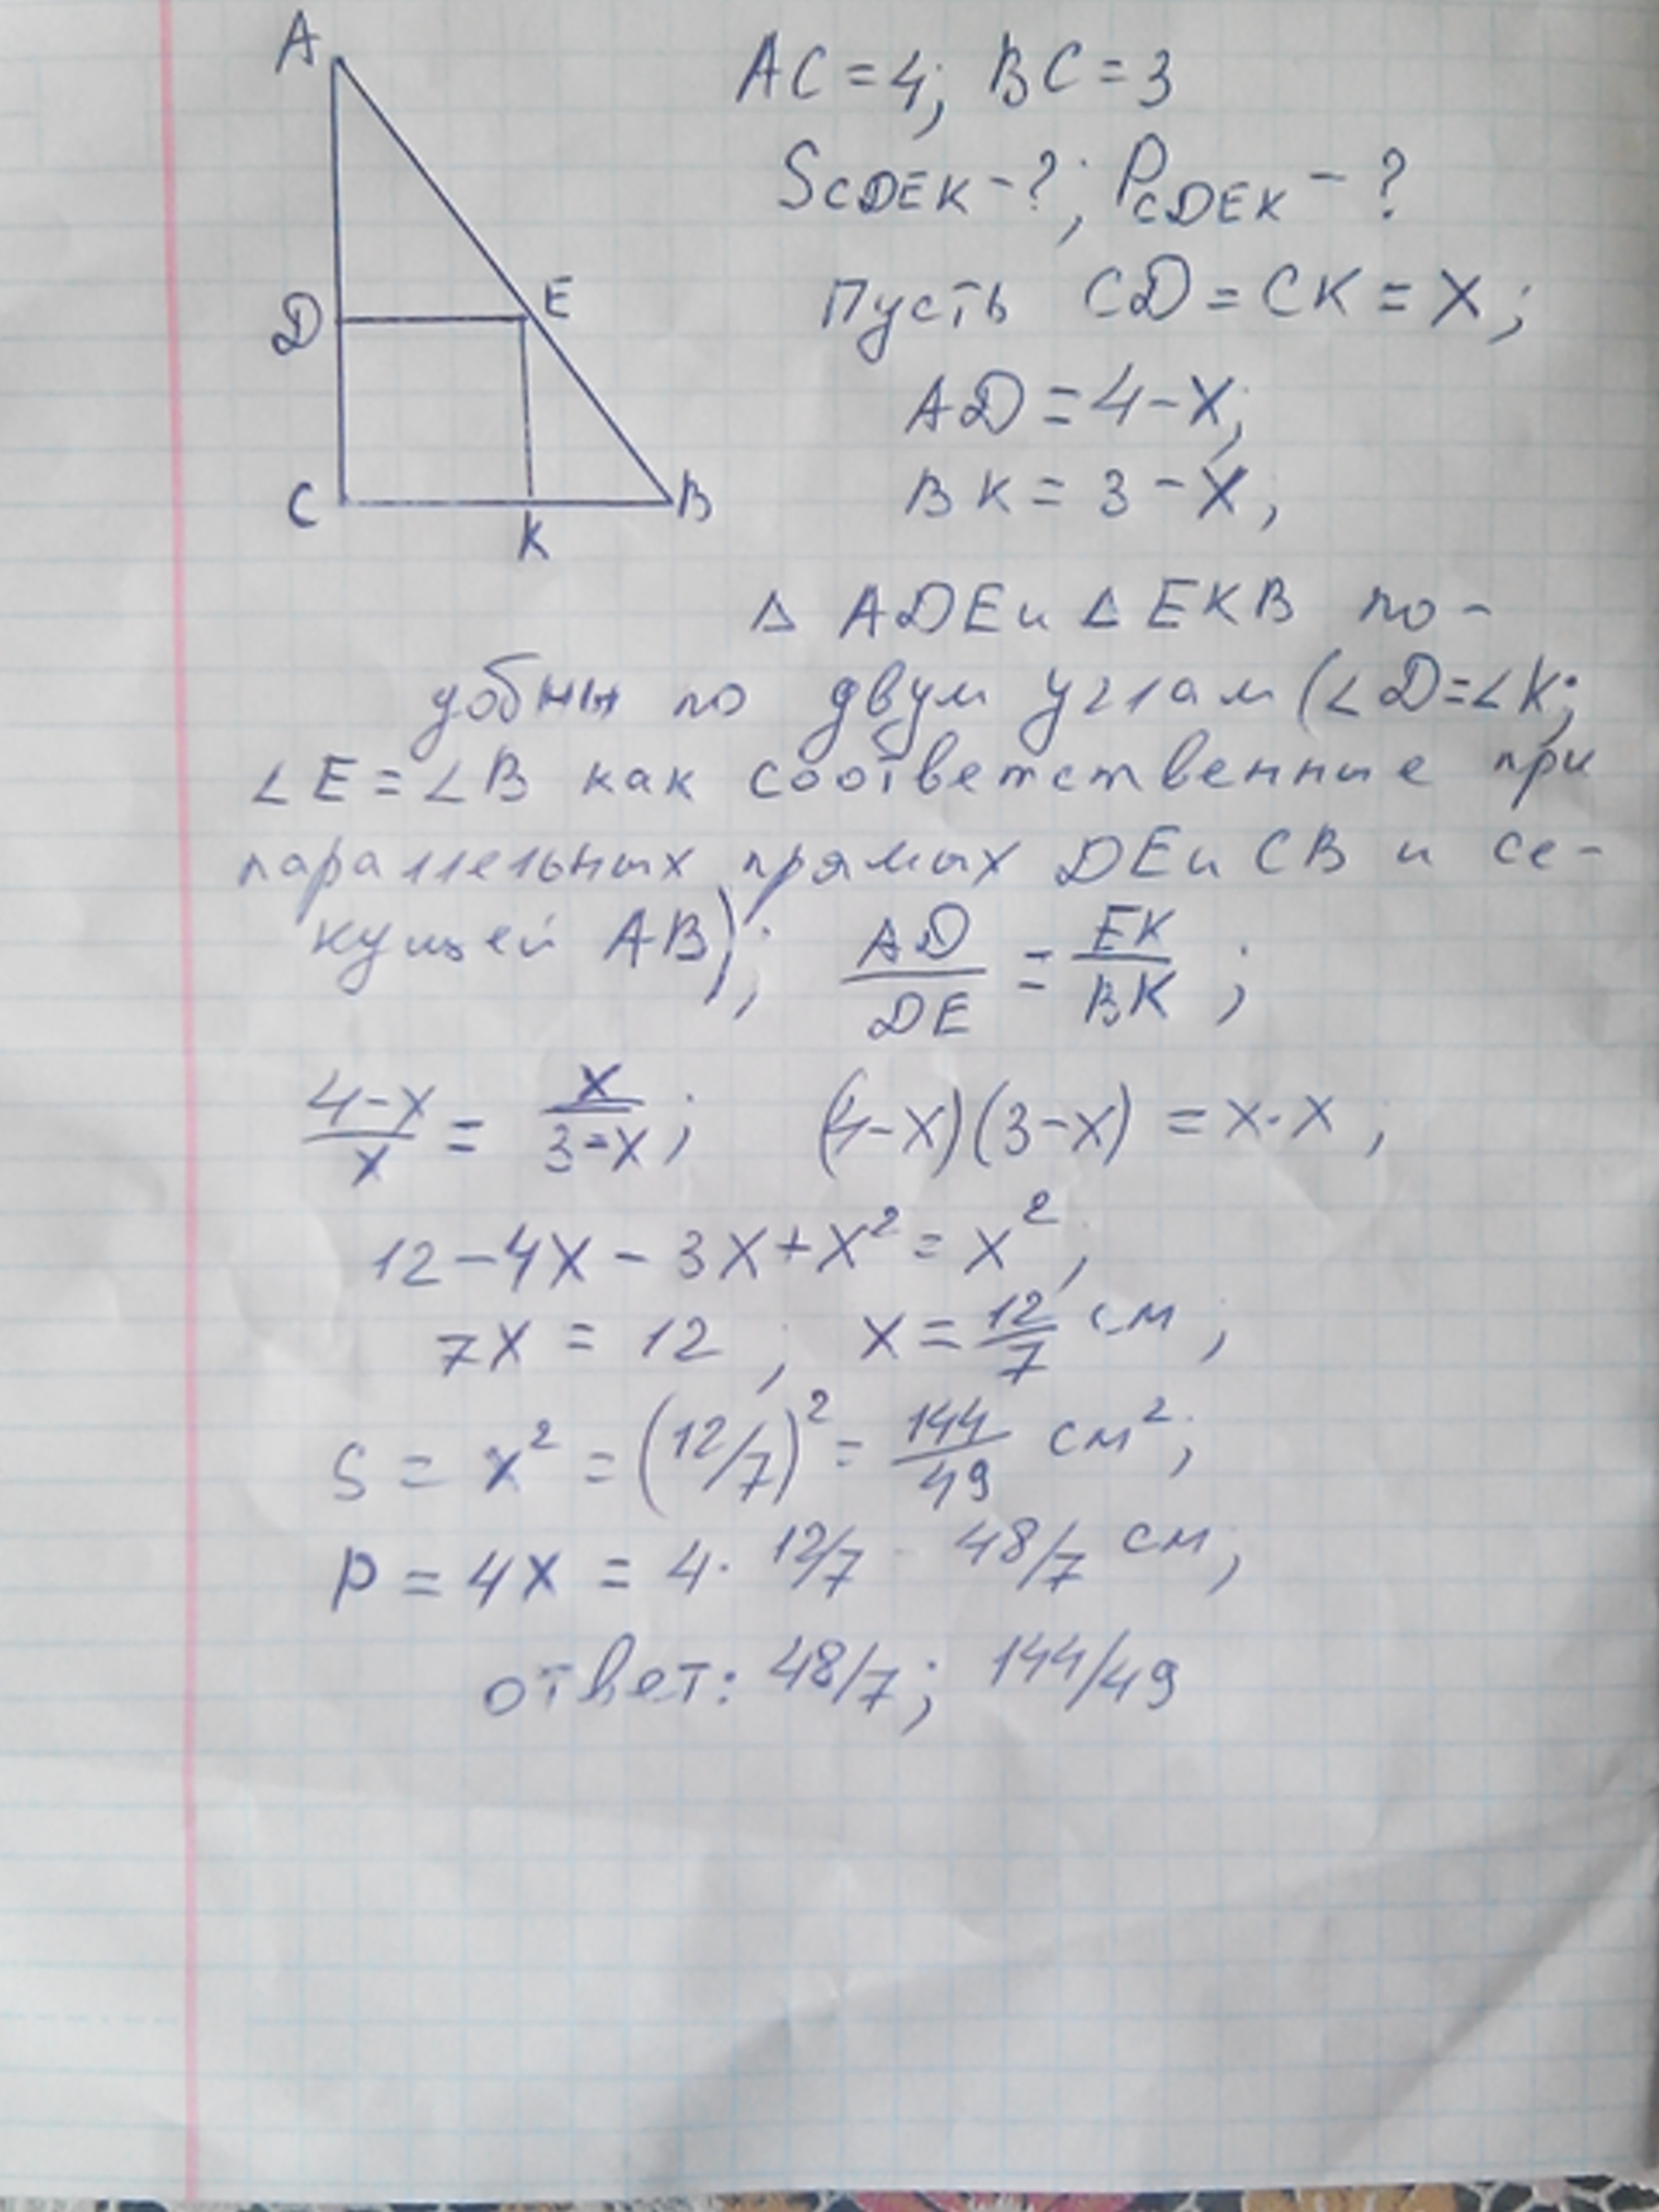 A
D
E
C
K
B
AC = 4; BC = 3
S CDEK - ?; P CDEK - ?
Пусть CD = CK = X;
AD = 4 - X;
BK = 3 - X;
Δ ADE и Δ EKB по-
добны по двум углам (∠D = ∠K;
∠E = ∠B как соответственные при
параллельных прямых DE и CB и се-
кущей AB); AD/DE = EK/BK;
(4-x)/x = x/(3-x); (4-x)(3-x) = x·x;
12 - 4x - 3x + x² = x²;
7x = 12; x = 12/7 см;
S = x² = (12/7)² = 144/49 см²;
P = 4x = 4 · 12/7 - 48/7 см;
ответ: 48/7; 144/49